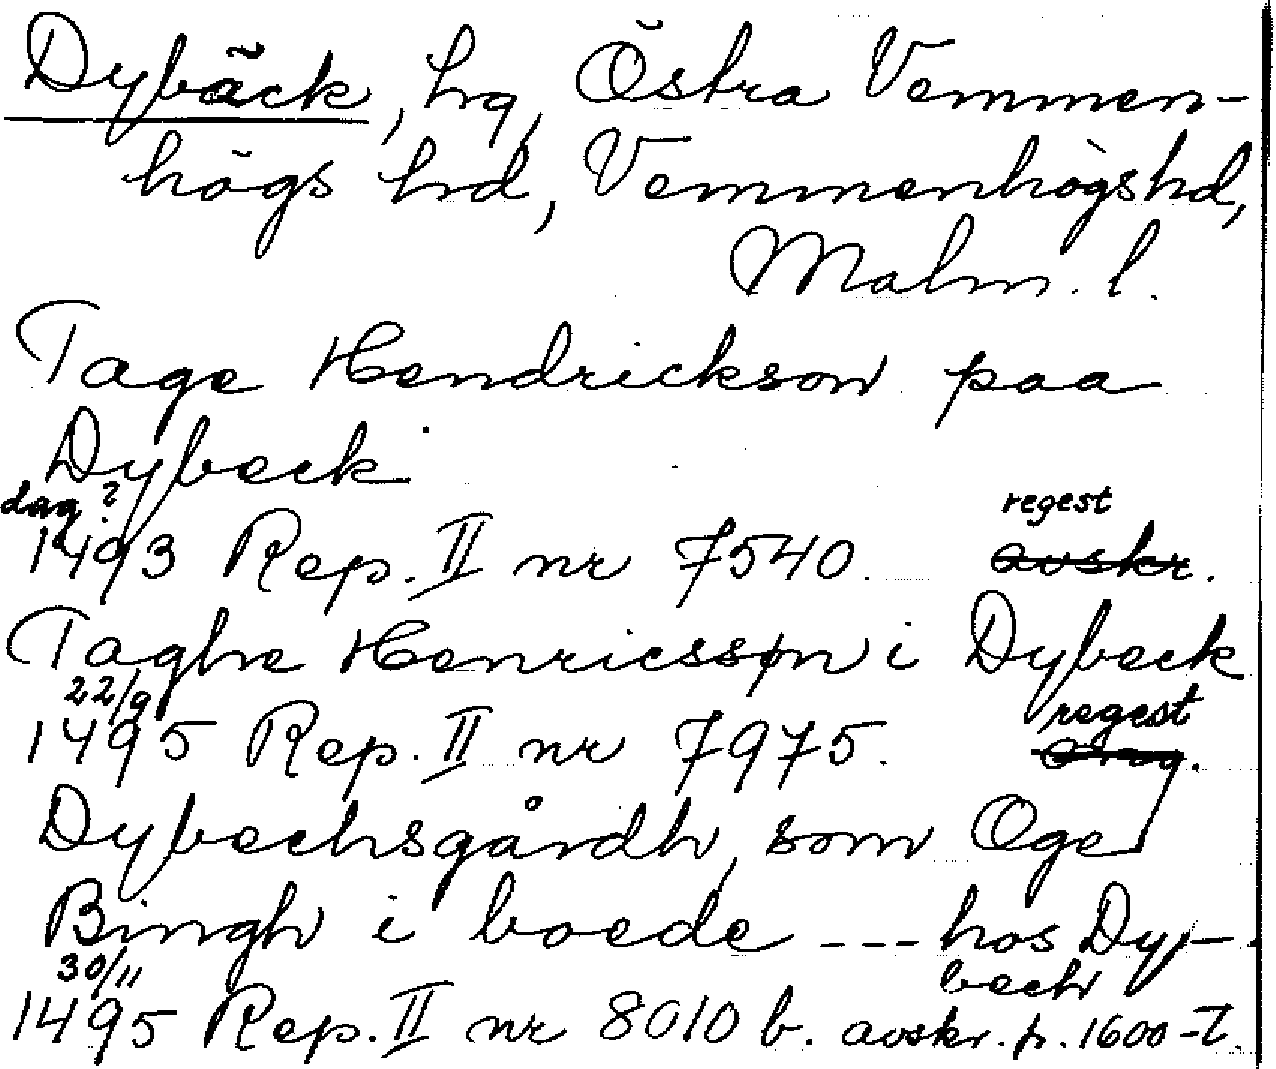 Dybäck, hg, Östra Vemmen-
högs hd, Vemmenhögs hd,
Malm. l.
Tage Hendrickson paa
Dybeck
dag?
regest
1493 Rep. II nr 7540. avskr.
Taghe Henricssøn i Dybeck
22/9
regest
1495 Rep. II nr 7975.
Dybechsgårdh, som Oge
Bingh i boede --- hos Dy-
30/11
bech
1495 Rep. II nr 8010 b. avskr. p. 1600-t.